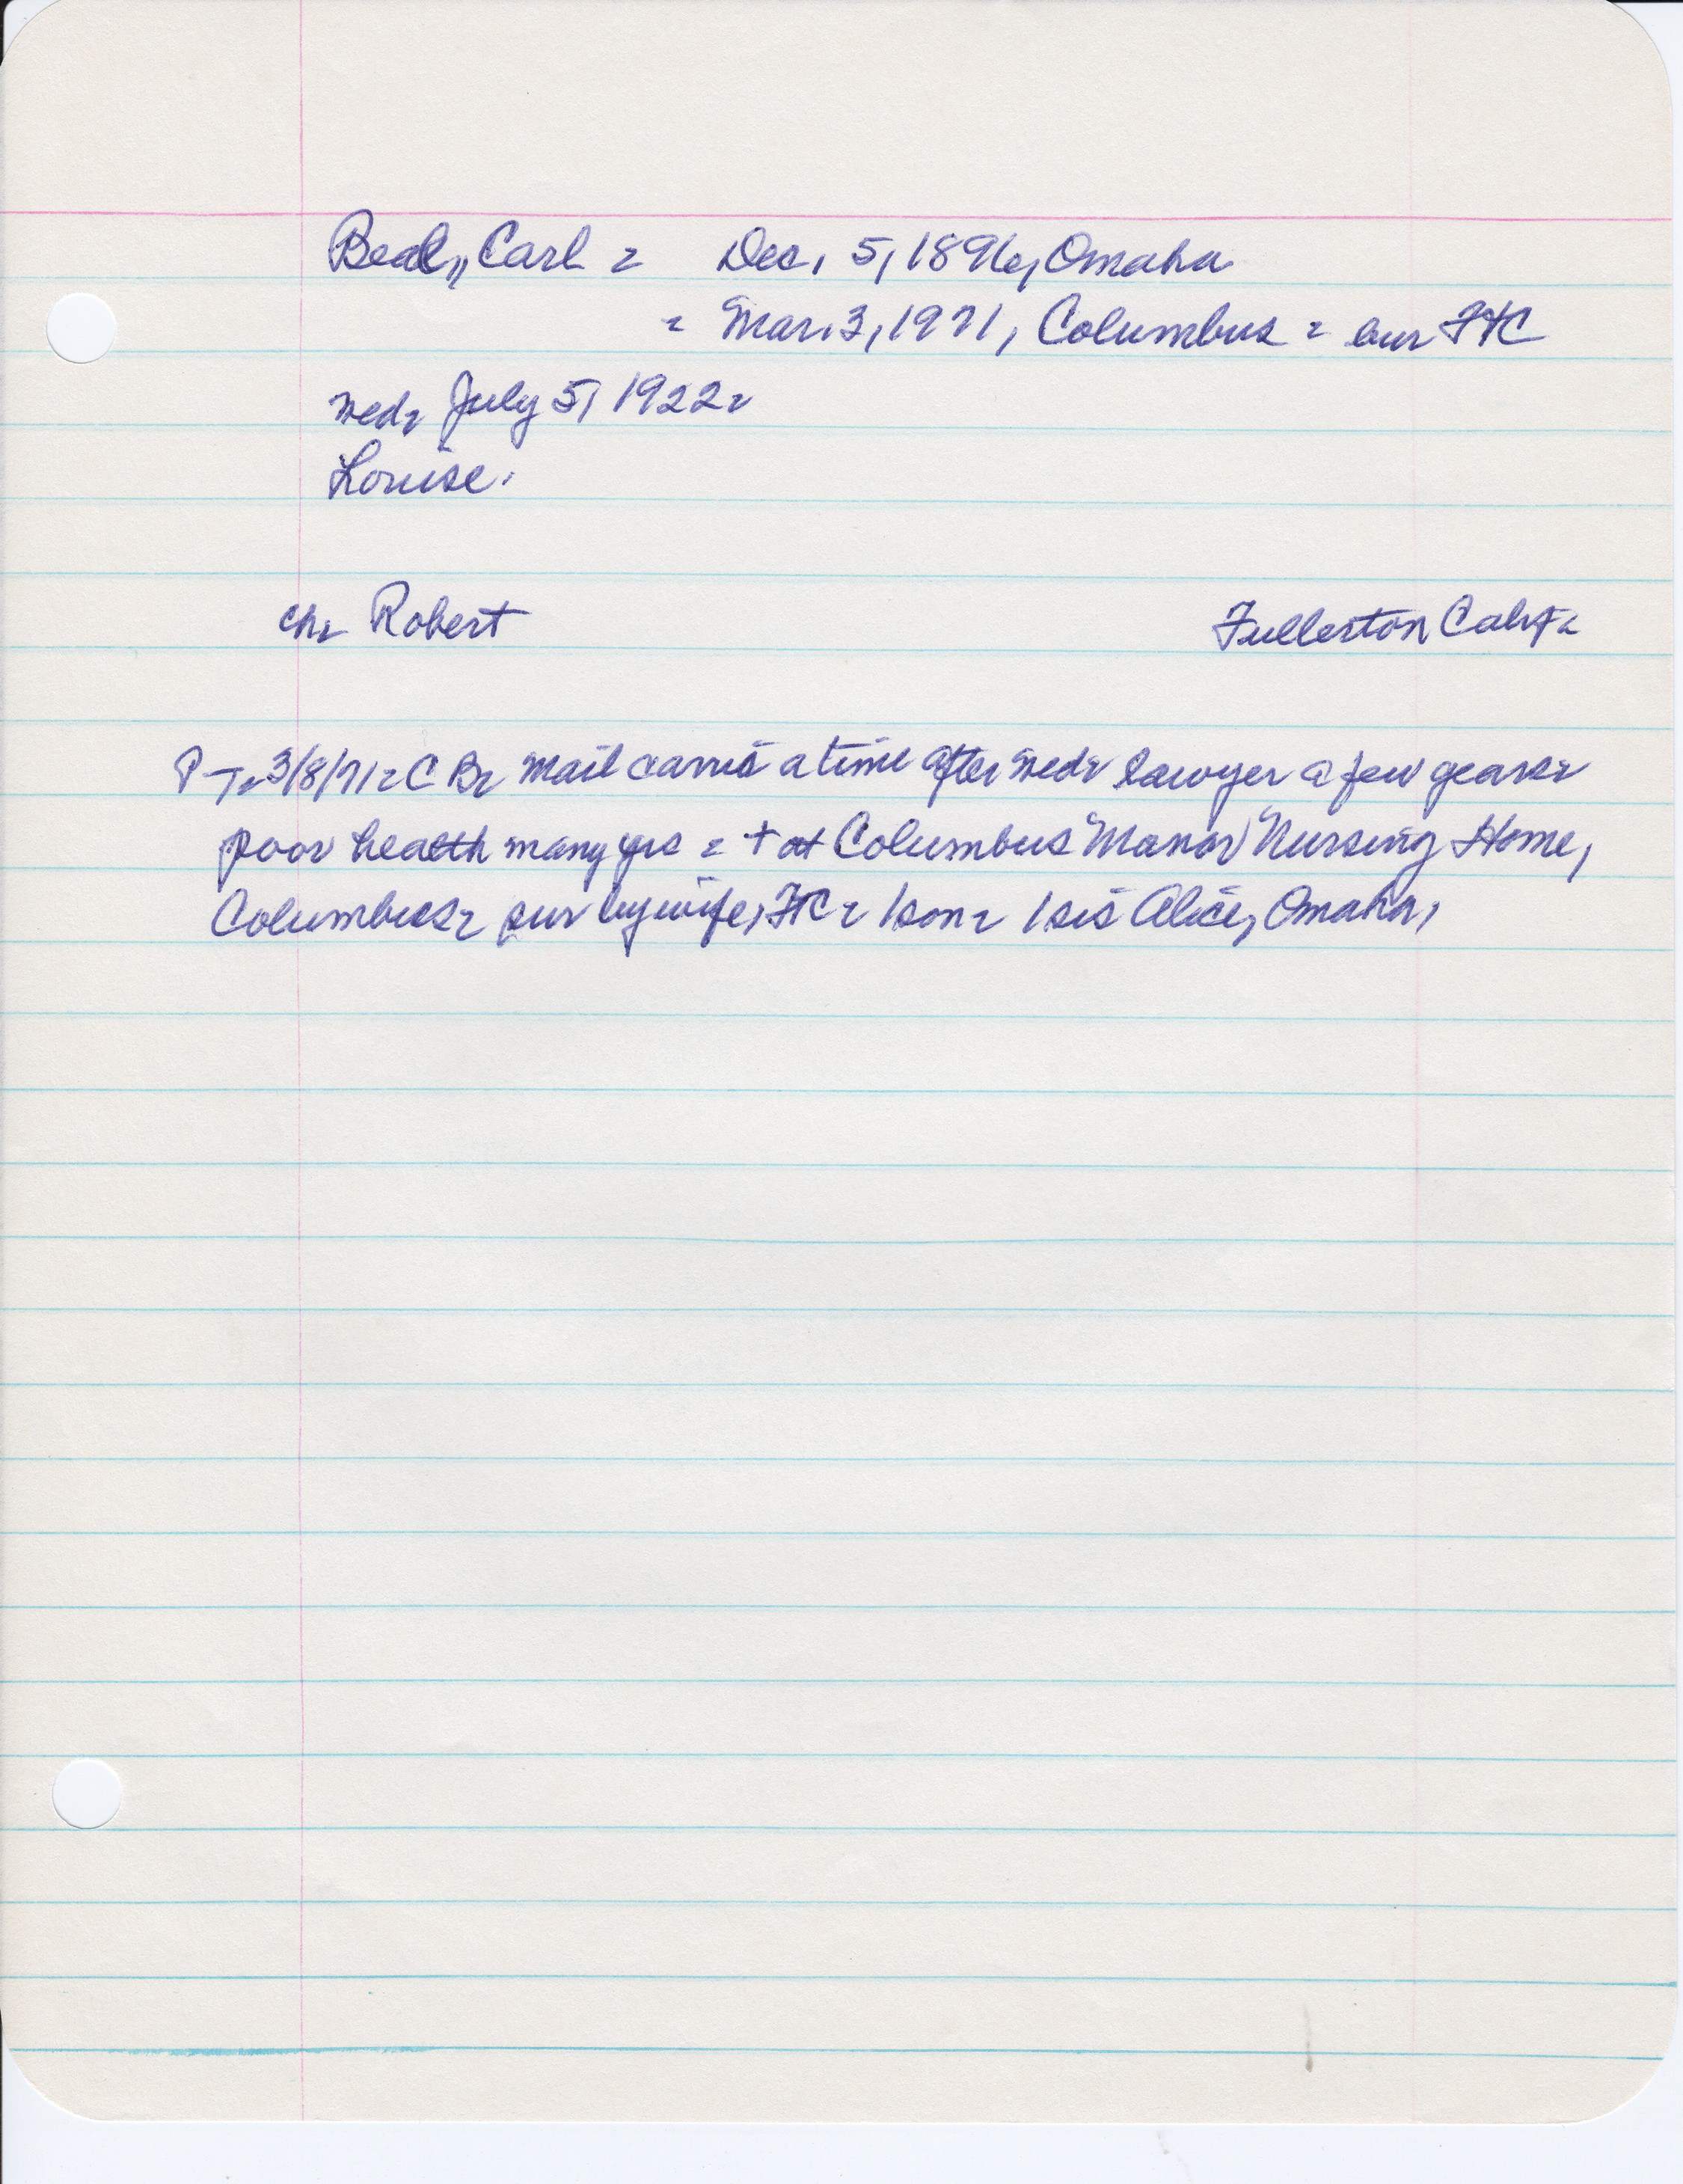 Beal, Carl = Dec. 5, 1896, Omaha
= Mar. 3, 1971, Columbus = bur FTC
Wed= July 5, 1922=
Louise.
Ch= Robert Fullerton Calif=
P-T= 3/8/71= C B= mail carrier a time after wed= lawyer a few years=
poor health many yrs = + at Columbus Manor Nursing Home,
Columbus= sur by wife, FTC = 1 son= 1 sis Alice, Omaha,